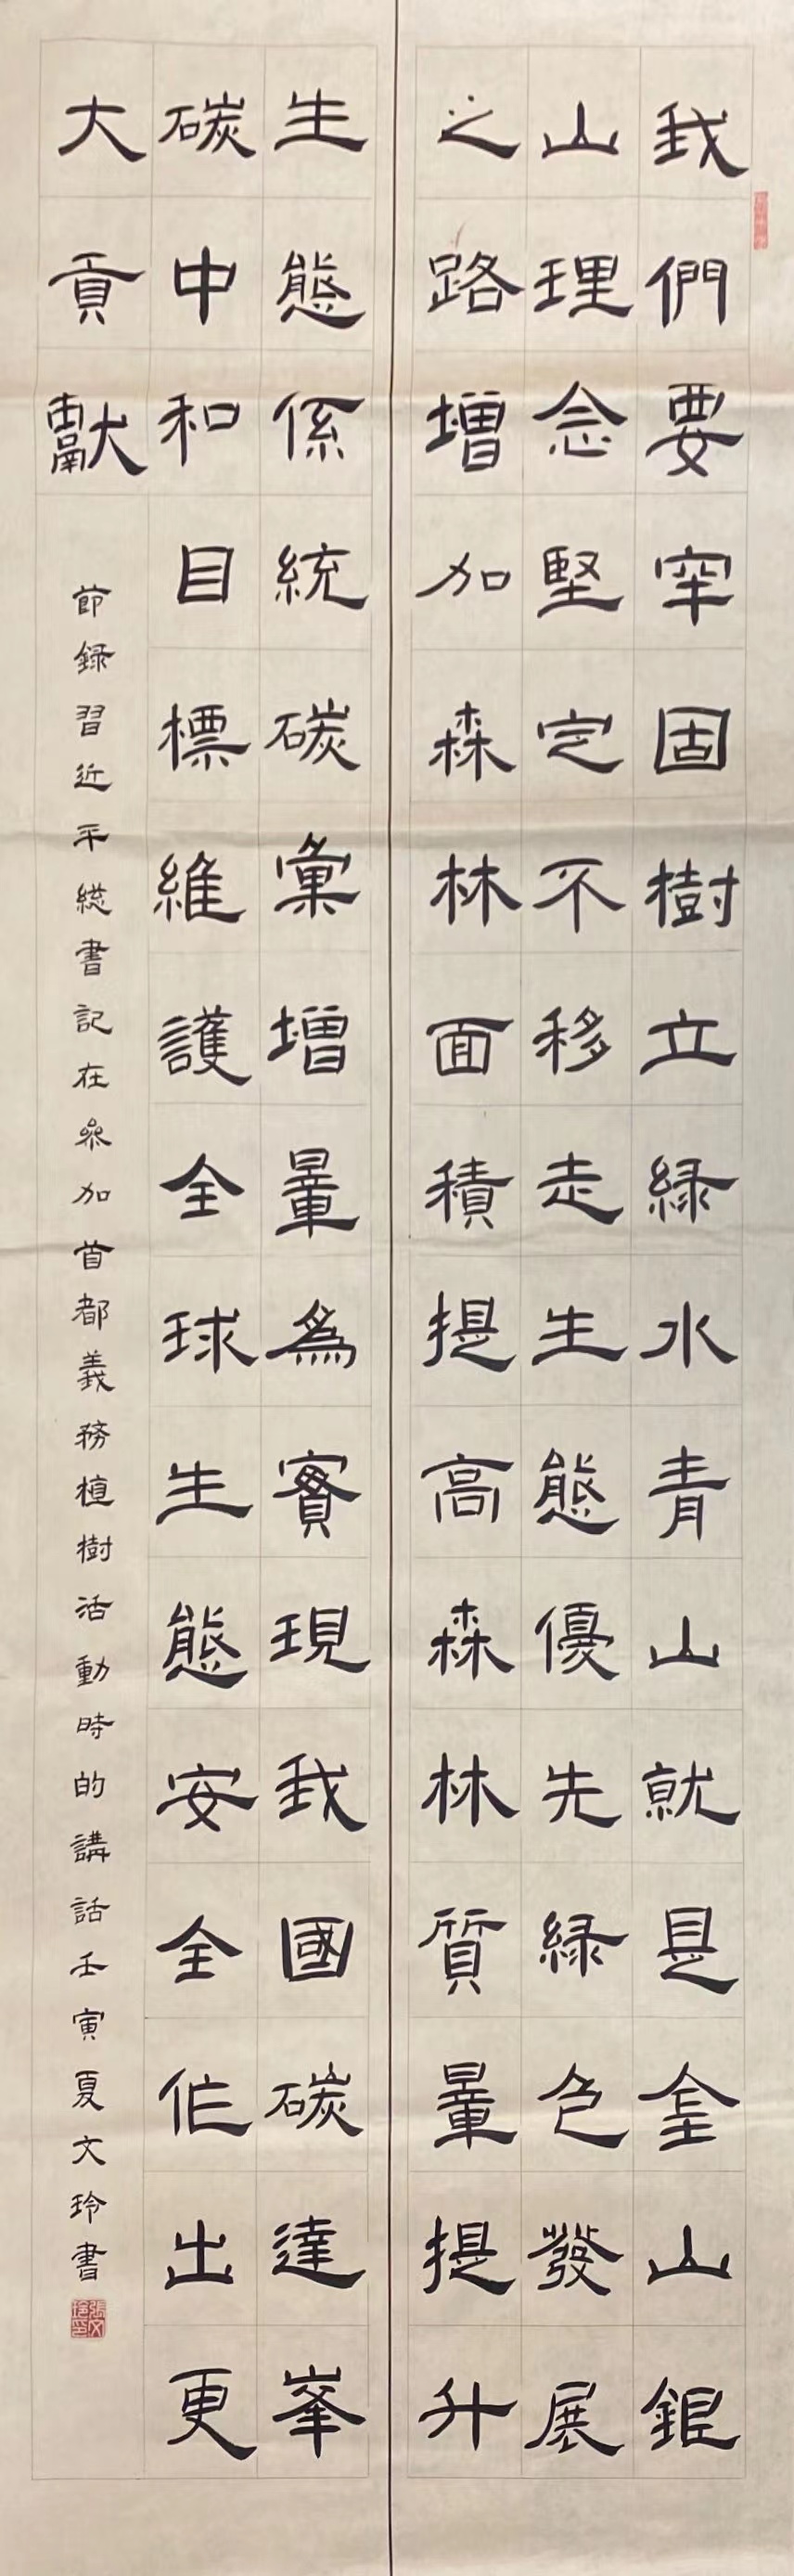 我們要牢固樹立緑水青山就是金山銀
山理念堅定不移走生態優先緑色發展
之路增加森林面積提高森林質量提升
生態係統碳彙增量爲實現我國碳達峯
碳中和目標維護全球生態安全作出更
大貢獻
節録習近平總書記在參加首都義務植樹活動時的講話壬寅夏文玲書
張文玲印